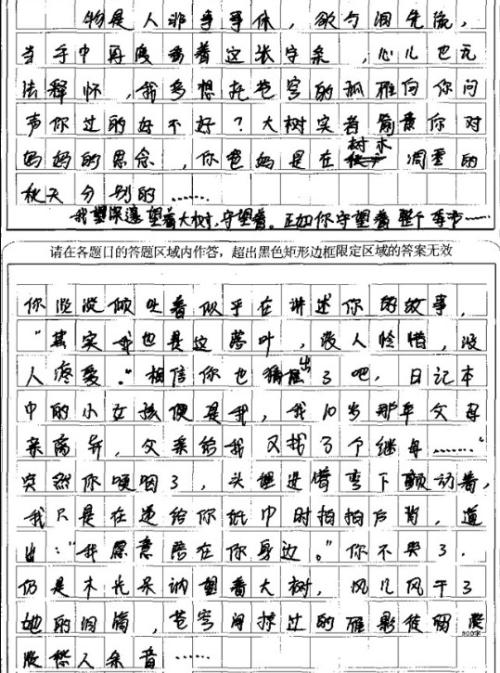 物是人非事事休，欲与泪先流，
当手中再度看着这张字条，心儿也无
法释怀，我多想托苍穹的孤雁向你问
声你过的好不好？大树实着你对
妈妈的思念，你爸妈是在树木凋零的
秋天分别的……
我望深邃望着大树，守望着。正如你守望着整个季节……
请在各题目的答题区域内作答，超出黑色矩形边框限定区域的答案无效
你淡淡倾吐着似乎在讲述你的故事，
“其实我也是这落叶，没人怜惜，没
人疼爱。”相信你也猜出了吧，日记本
中的小女孩便是我，我10岁那年父母
亲离异，父亲给我又找了个继母……”
突然你哽咽了，头埋进臂弯下颤动着，
我只是在递给你纸巾时拍拍后背，道
出：“我愿意陪在你身边。”你不哭了，
仍是木长呆讷望着大树，风儿风干了
她的泪痕，苍穹间掠过的雁影使留
悠人余音……